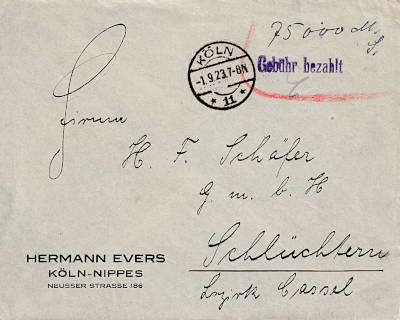 75000 M.
KÖLN
-1.9.23.7-8N
* 11 *
Gebühr bezahlt
Firma
H. F. Schäfer
G. m. b. H
Schlüchtern
Bezirk Cassel
HERMANN EVERS
KÖLN-NIPPES
NEUSSER STRASSE 186